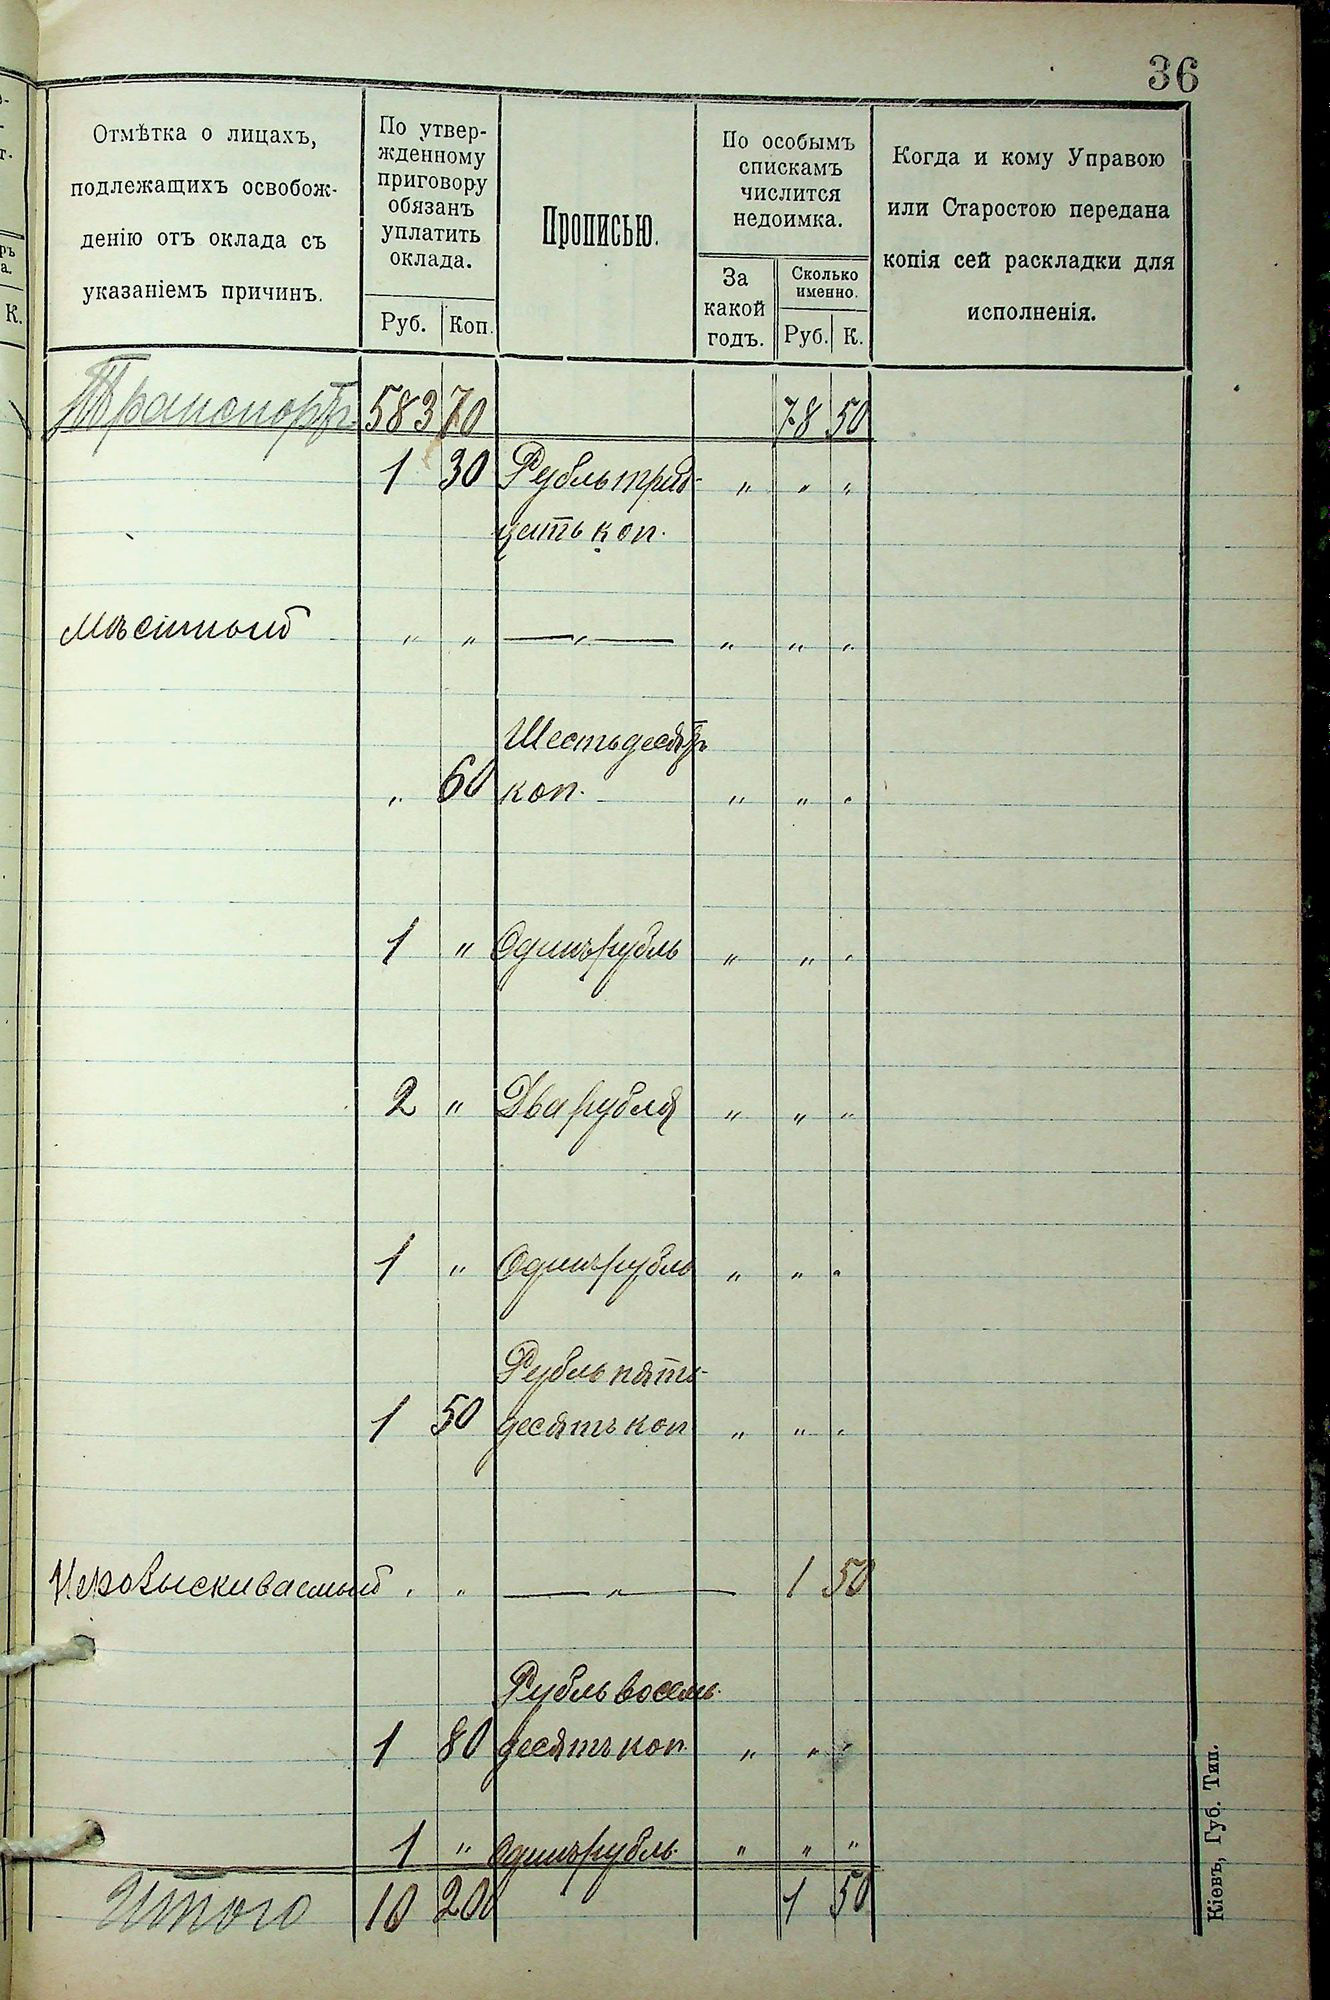 36
Отмѣтка о лицахъ,
подлежащихъ освобож-
денію отъ оклада съ
указаніемъ причинъ.
По утвер-
жденному
приговору
обязанъ
уплатить
оклада.
Руб. Коп.
Прописью.
По особымъ
спискамъ
числится
недоимка.
За
какой
годъ.
Сколько
именно.
Руб. К.
Когда и кому Управою
или Старостою передана
копія сей раскладки для
исполненія.
Транспортъ 583 70 78 50
1 30 Рубль трид- " " "
цать коп.
Мѣстный " " — " — " " "
Шестьдесятъ
" 60 коп. " " "
1 " Одинъ рубль " " "
2 " Два рубля " " "
1 " Одинъ рубль " " "
Рубль пять-
1 50 десятъ коп " " "
" " — " — 1 50
Рубль восемь-
1 80 десятъ коп. " " "
1 " Одинъ рубль " " "
Итого 10 20 1 50
Кіевъ, Губ. Тип.
К.